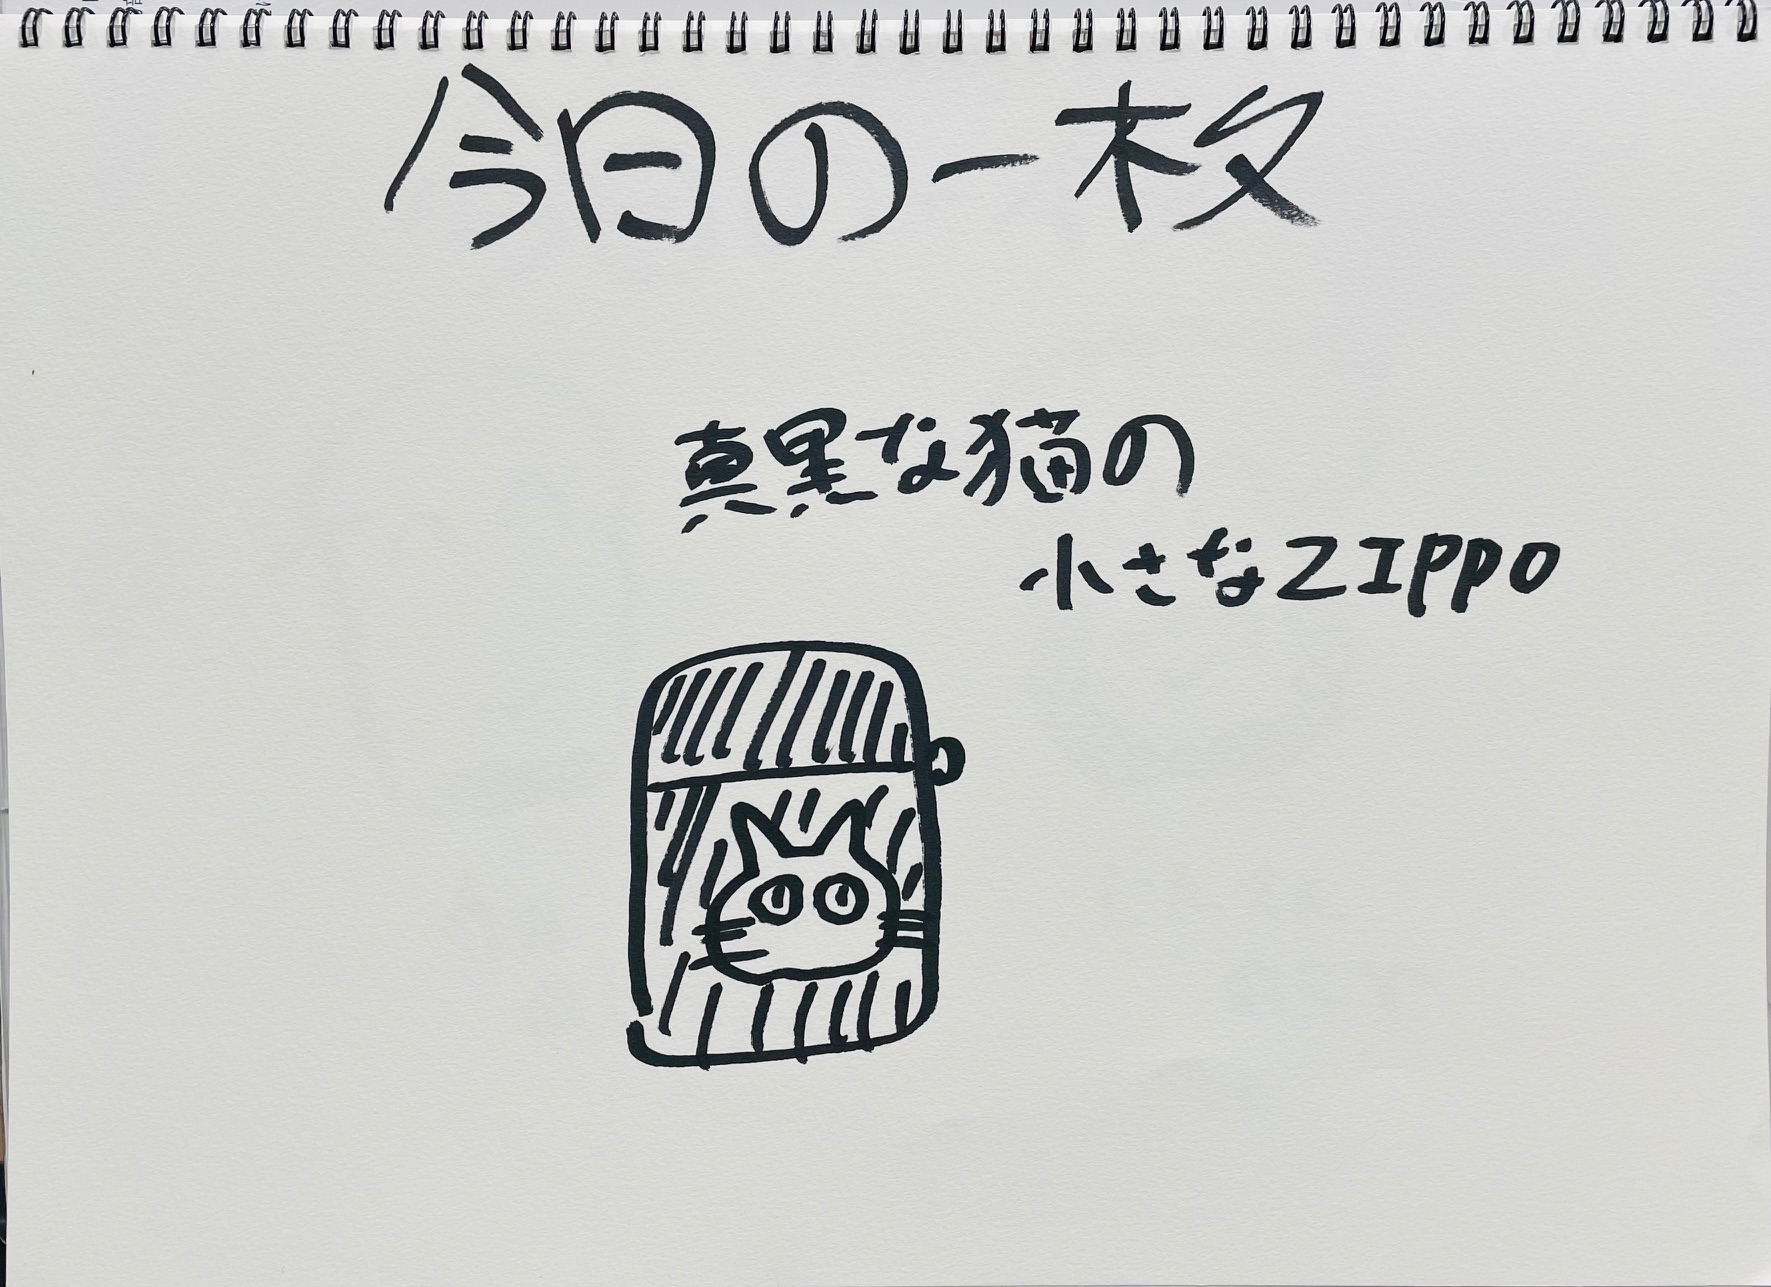 今日の一枚
真黒な猫の
小さなZIPPO